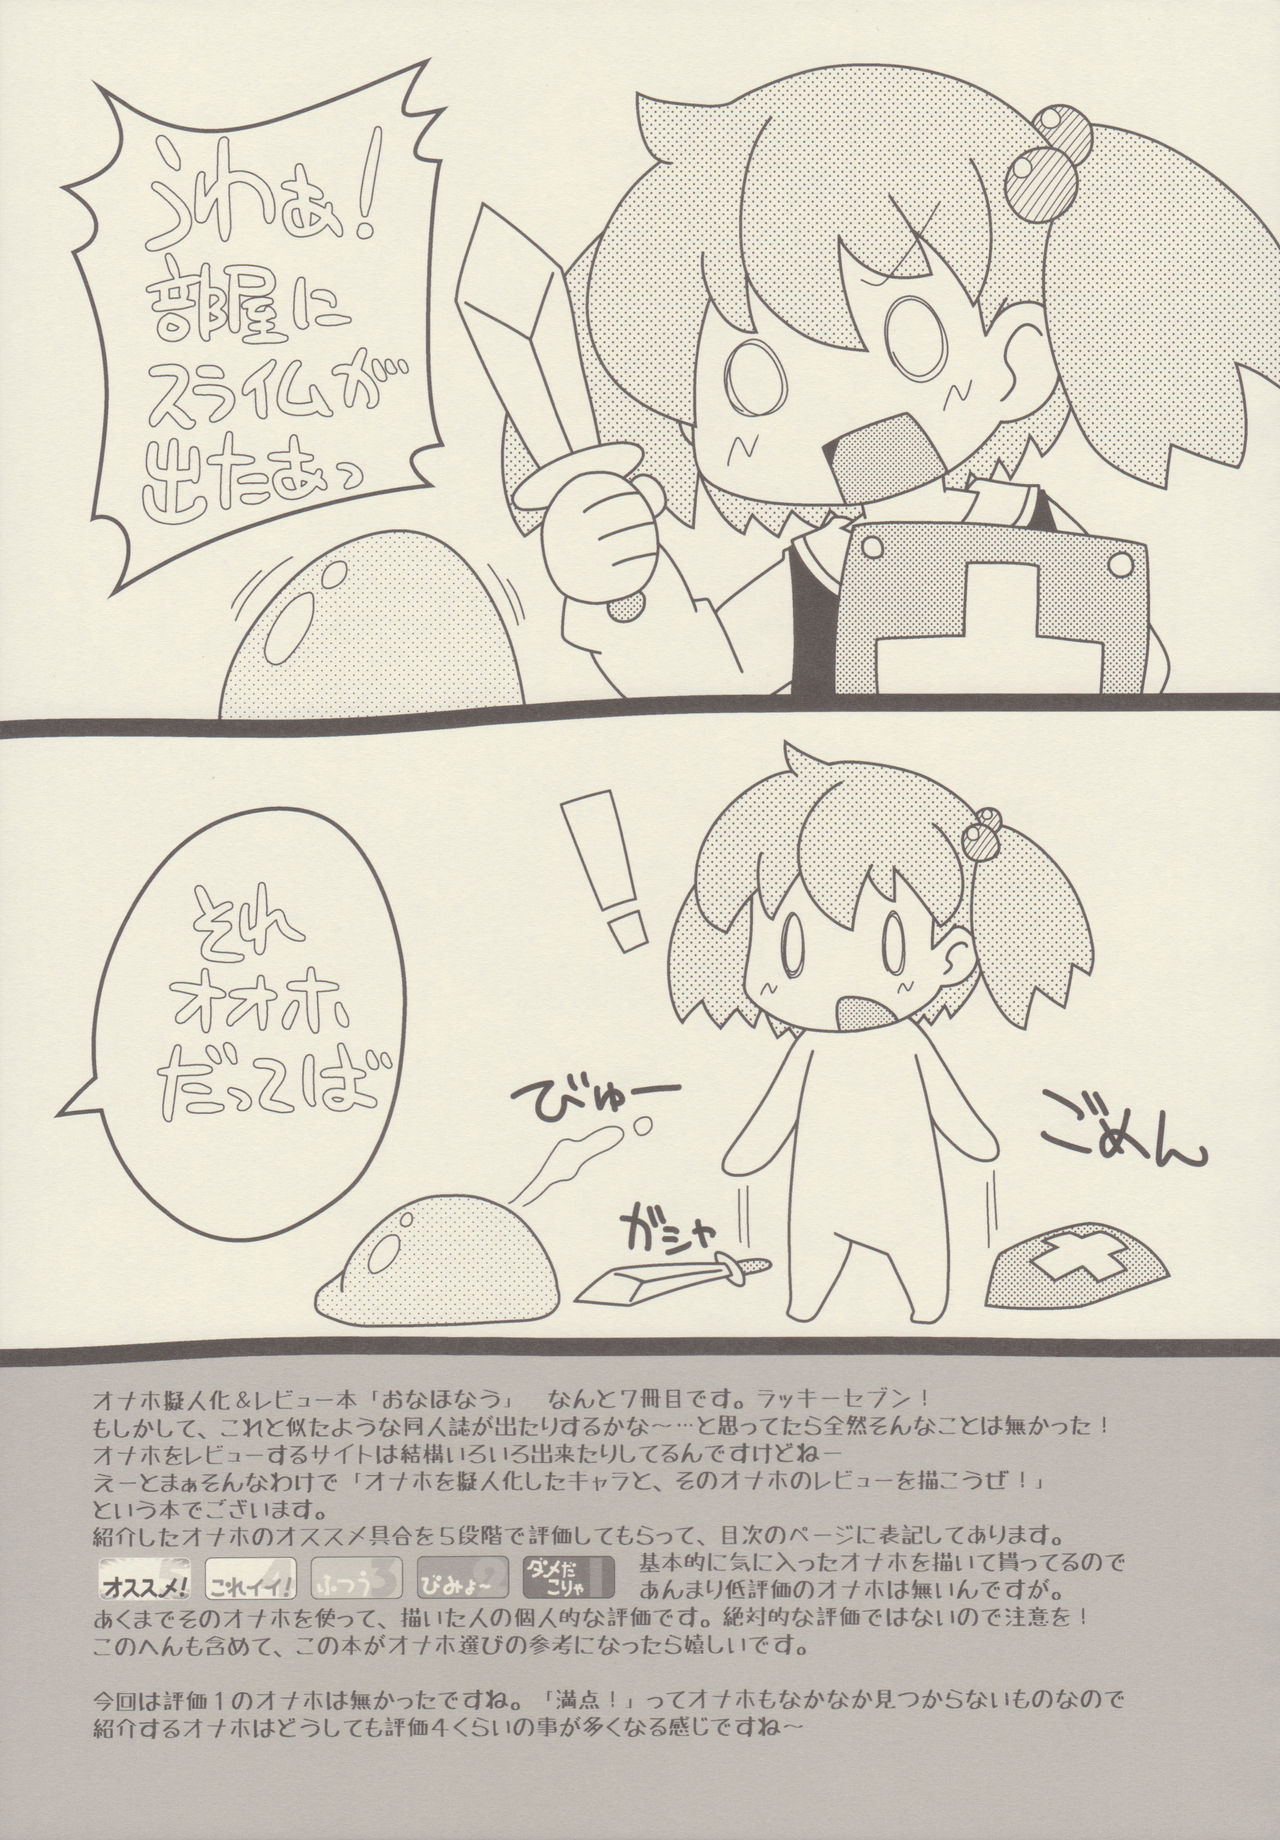 うわぁ!
部屋に
スライムが
出たぁっ
それ
オナホ
だってば
びゅー
ごめん
ガシャ
オナホ擬人化&レビュー本「おなほなう」 なんと7冊目です。ラッキーセブン!
もしかして、これと似たような同人誌が出たりするかな~…と思ってたら全然そんなことは無かった!
オナホをレビューするサイトは結構いろいろ出来たりしてるんですけどねー
えーとまぁそんなわけで「オナホを擬人化したキャラと、そのオナホのレビューを描こうぜ!」
という本でございます。
紹介したオナホのオススメ具合を5段階で評価してもらって、目次のページに表記してあります。
オススメ! 5
これイイ! 4
ふつう 3
びみょ~ 2
ダメだ
こりゃ 1
基本的に気に入ったオナホを描いて貰ってるので
あんまり低評価のオナホは無いんですが。
あくまでそのオナホを使って、描いた人の個人的な評価です。絶対的な評価ではないので注意を!
このへんも含めて、この本がオナホ選びの参考になったら嬉しいです。
今回は評価1のオナホは無かったですね。「満点!」ってオナホもなかなか見つからないものなので
紹介するオナホはどうしても評価4くらいの事が多くなる感じですね~